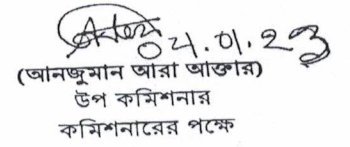 04.01.23
(আনজুমান আরা আক্তার)
উপ কমিশনার
কমিশনারের পক্ষে